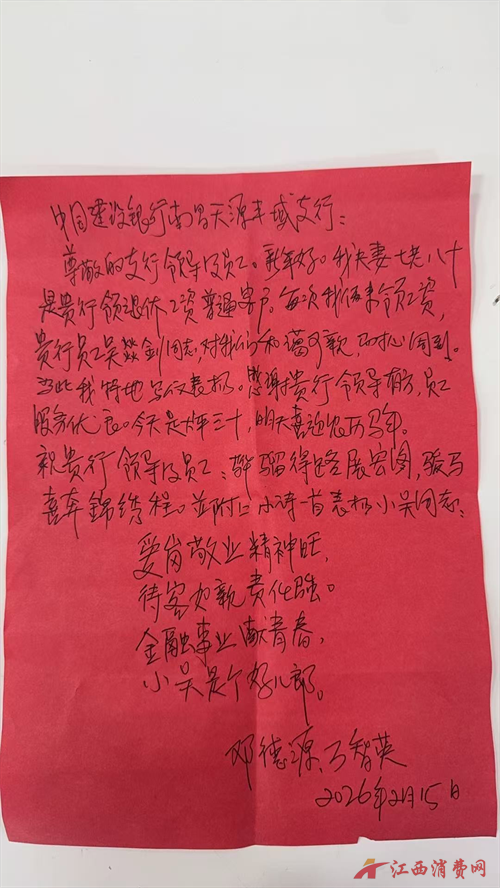 中国建设银行南昌天源丰城支行：
尊敬的支行领导及员工。新年好。我夫妻七老八十
是贵行领退休工资普通客户。每次我俩来领工资，
贵行员工吴燚剑同志，对我们和蔼可亲，贴心周到。
为此我特地写信表扬。感谢贵行领导有方，员工
服务优良。今天是大年三十，明天喜迎农历马年。
祝贵行领导及员工：骅骝得路展宏图，骏马
喜奔錦绣程。並附上小诗一首表扬小吴同志：
爱岗敬业精神旺，
待客如親责任强。
金融事业献青春，
小吴是个好儿郎。
邓德源、万智英
2026年2月15日
江西消费网